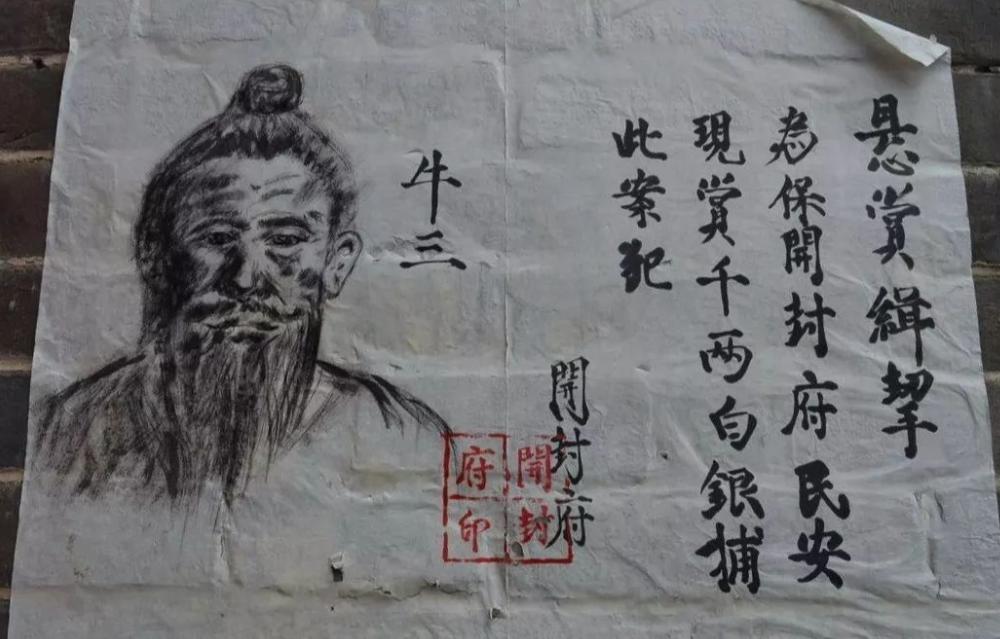 悬賞緝挈
為保開封府民安
現賞千两白銀捕
此案犯
開封府
開封
府印
牛三